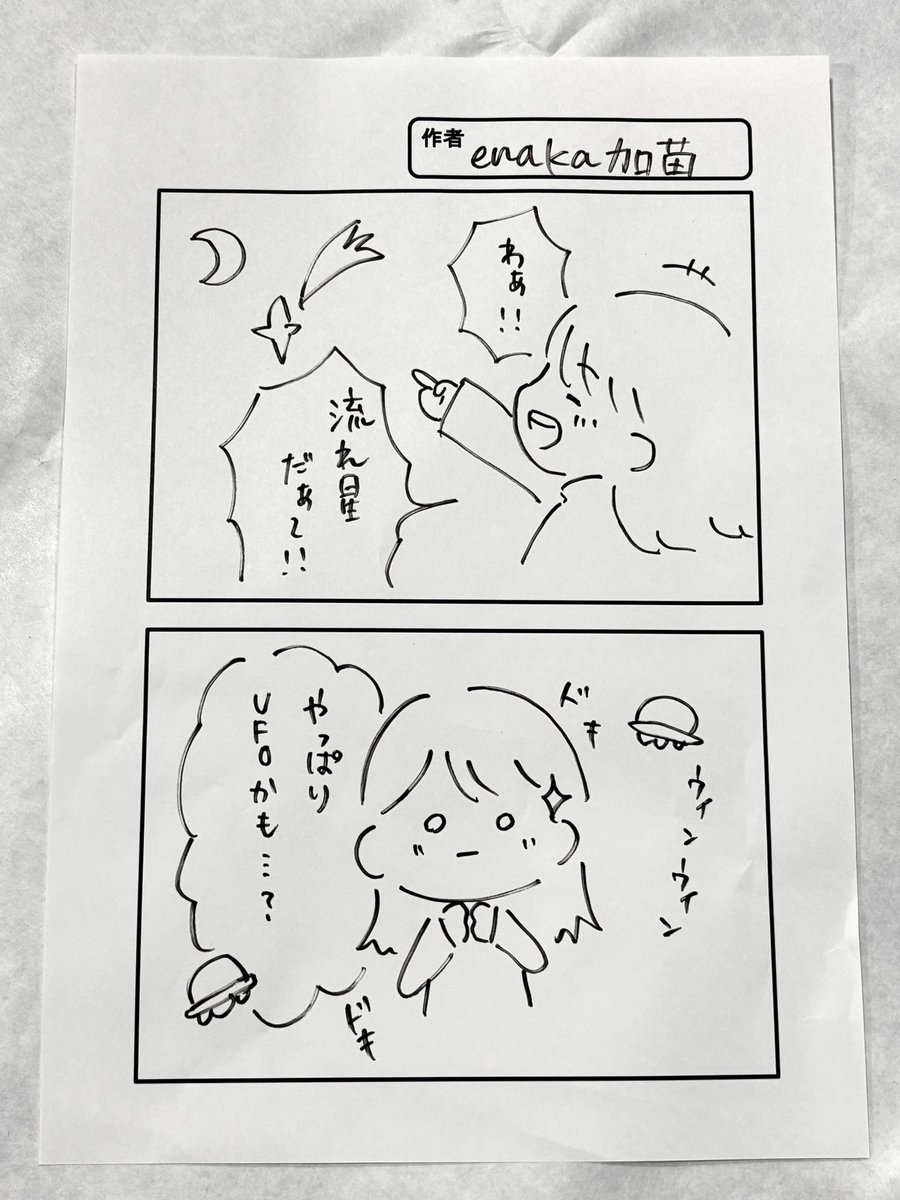 作者 enaka加苗
わぁ!!
流れ星
だぁ〜!!
ドキ
ウィンウィン
やっぱり
UFOかも…?
ドキ